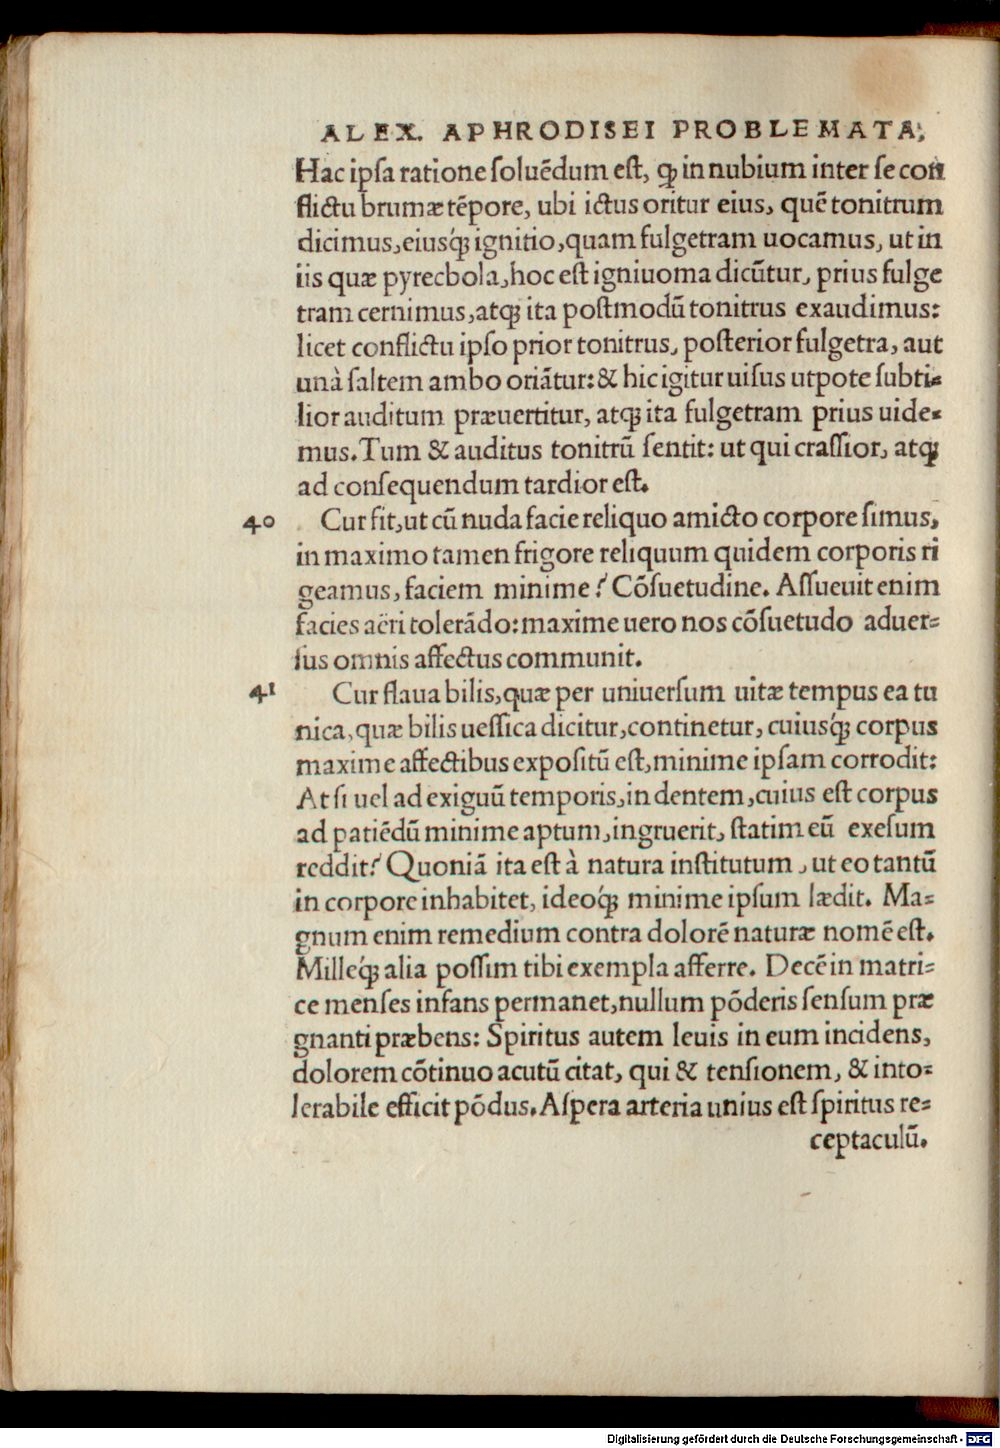 ALEX. APHRODISEI PROBLEMATA,
Hac ipſa ratione ſoluēdum eſt, ꝙ in nubium inter ſe con
flictu brumæ tēpore, ubi ictus oritur eius, quē tonitrum
dicimus, eiusq́; ignitio, quam fulgetram uocamus, ut in
iis quæ pyrecbola, hoc eſt igniuoma dicūtur, prius fulge
tram cernimus, atq; ita poſtmodū tonitrus exaudimus:
licet conflictu ipſo prior tonitrus, poſterior fulgetra, aut
unà ſaltem ambo oriātur: & hic igitur uiſus utpote ſubti-
lior auditum præuertitur, atq; ita fulgetram prius uide-
mus. Tum & auditus tonitrū ſentit: ut qui craſſior, atq;
ad conſequendum tardior eſt.
40 Cur fit, ut cū nuda facie reliquo amicto corpore ſimus,
in maximo tamen frigore reliquum quidem corporis ri
geamus, faciem minime? Cōſuetudine. Aſſueuit enim
facies aëri tolerādo: maxime uero nos cōſuetudo aduer-
ſus omnis affectus communit.
41 Cur flaua bilis, quæ per uniuerſum uitæ tempus ea tu
nica, quæ bilis ueſſica dicitur, continetur, cuiusq́; corpus
maxime affectibus expoſitū eſt, minime ipſam corrodit:
At ſi uel ad exiguū temporis, in dentem, cuius eſt corpus
ad patiēdū minime aptum, ingruerit, ſtatim eū exeſum
reddit? Quoniā ita eſt à natura inſtitutum, ut eo tantū
in corpore inhabitet, ideoq́; minime ipſum lædit. Ma-
gnum enim remedium contra dolorē naturæ nomē eſt.
Milleq́; alia poſſim tibi exempla afferre. Decē in matri-
ce menſes infans permanet, nullum pōderis ſenſum præ
gnanti præbens: Spiritus autem leuis in eum incidens,
dolorem cōtinuo acutū citat, qui & tenſionem, & into-
lerabile efficit pōdus. Aſpera arteria unius eſt ſpiritus re-
ceptaculū.
Digitalisierung gefördert durch die Deutsche Forschungsgemeinschaft - DFG